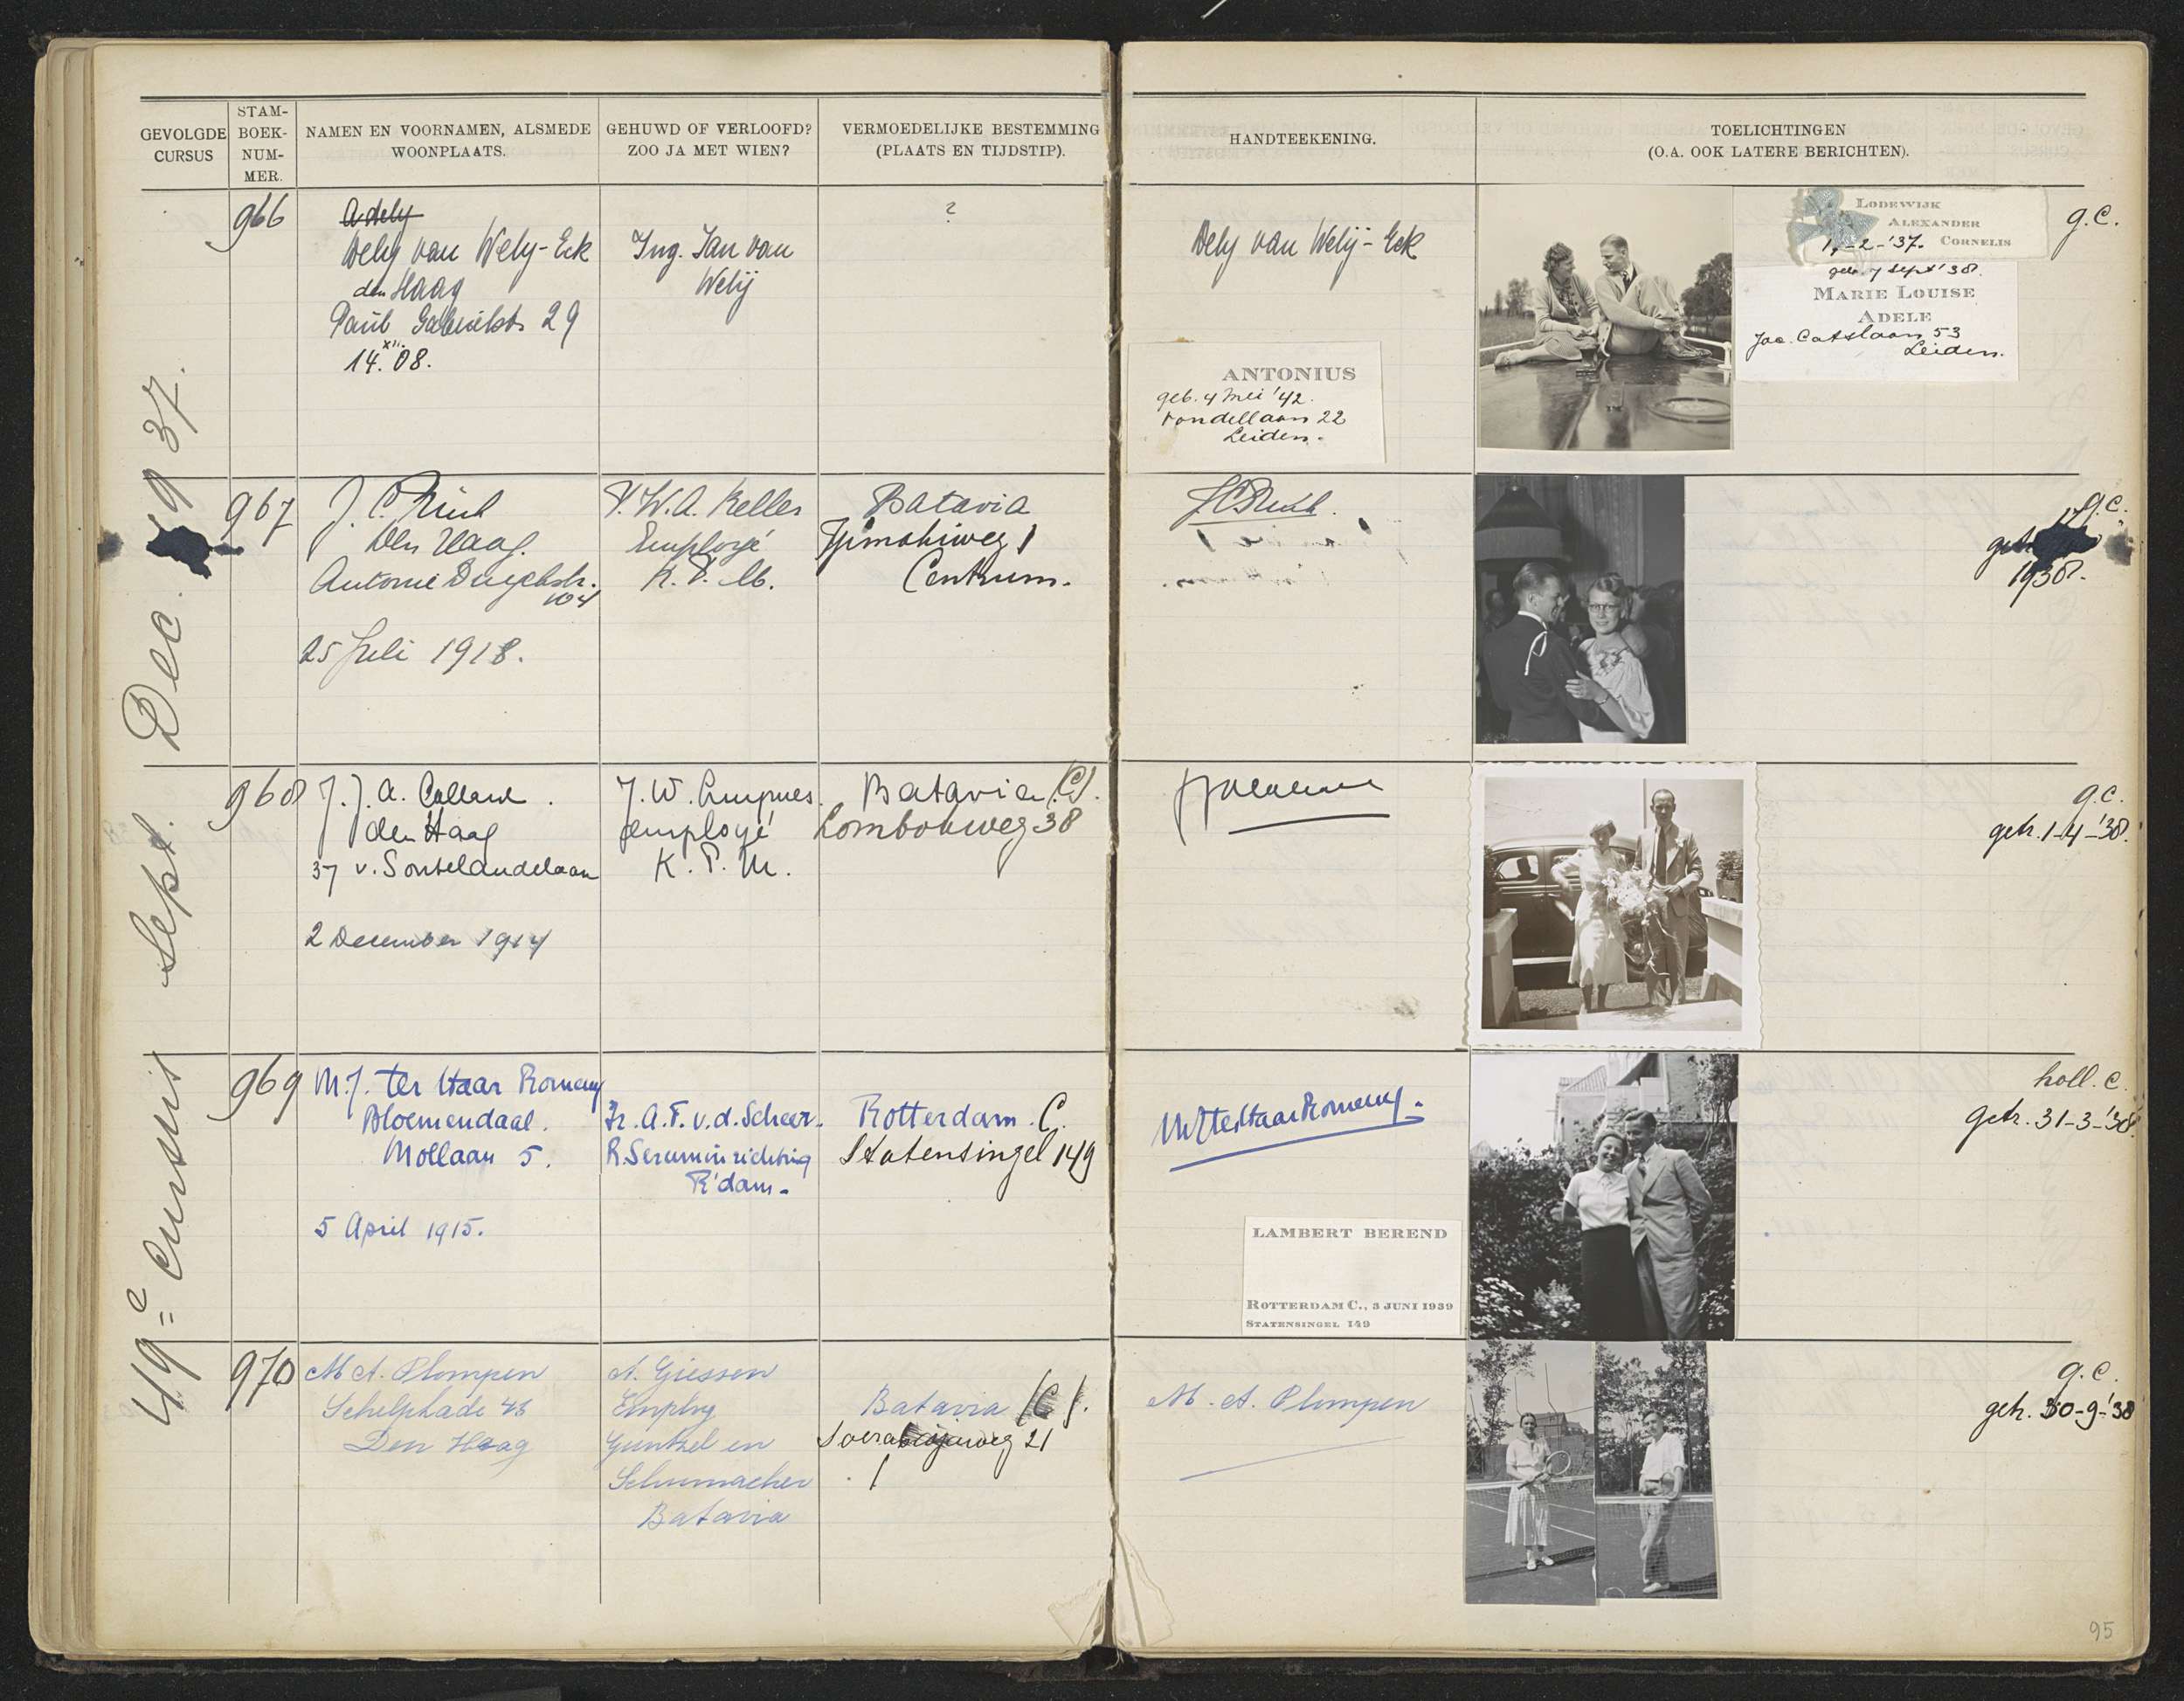 GEVOLGDE
CURSUS
STAM-
BOEK-
NUM-
MER.
NAMEN EN VOORNAMEN, ALSMEDE
WOONPLAATS.
GEHUWD OF VERLOOFD?
ZOO JA MET WIEN?
VERMOEDELIJKE BESTEMMING
(PLAATS EN TIJDSTIP).
HANDTEEKENING.
TOELICHTINGEN
(O.A. OOK LATERE BERICHTEN).
49e Cursus Sept. Dec. 1937.
966
Adely
Dely van Wely-Eck
den Haag
Paul Gabrielstr 29
14.XII.08.
Ing. Jan van
Welij
?
Dely van Welij-Eck
ANTONIUS
geb. 4 Mei '42.
Vondellaan 22
Leiden.
LODEWIJK
ALEXANDER
CORNELIS
-2-'37.
geb. 7 Sept '38.
MARIE LOUISE
ADELE
Jac. Catslaan 53
Leiden.
g.C.
967
J. C.
Den Haag.
Antonie Duyckstr.
104
25 Juli 1918.
W.A. Keller
Employé
K.P.M.
Batavia
Tjimahiweg 1
Centrum.
g.C.
1938.
968
J.J.A. Collard.
den Haag
37 v. Soutelandelaan
2 December 1914
J.W.
employé
K.P.M.
Batavia (C).
Lombokweg 38
g.C.
getr. 1-4-'38.
969
M.J. ter Haar Romeny
Bloemendaal.
Mollaan 5.
5 April 1915.
Ir. A.F. v.d. Scheer.
R. Seruminrichting
R'dam.
Rotterdam. C.
Statensingel 149
MJterHaarRomeny.
LAMBERT BEREND
ROTTERDAM C., 3 JUNI 1939
STATENSINGEL 149
holl. C.
getr. 31-3-'38.
970
M A. Plompen
Schelpkade 48
Den Haag
A. Giessen
Employ
Guntzel en
Schumacher
Batavia
Batavia (C).
Soerabajaweg 21
M. A. Plompen
g.C.
getr. 30-9-'38
95